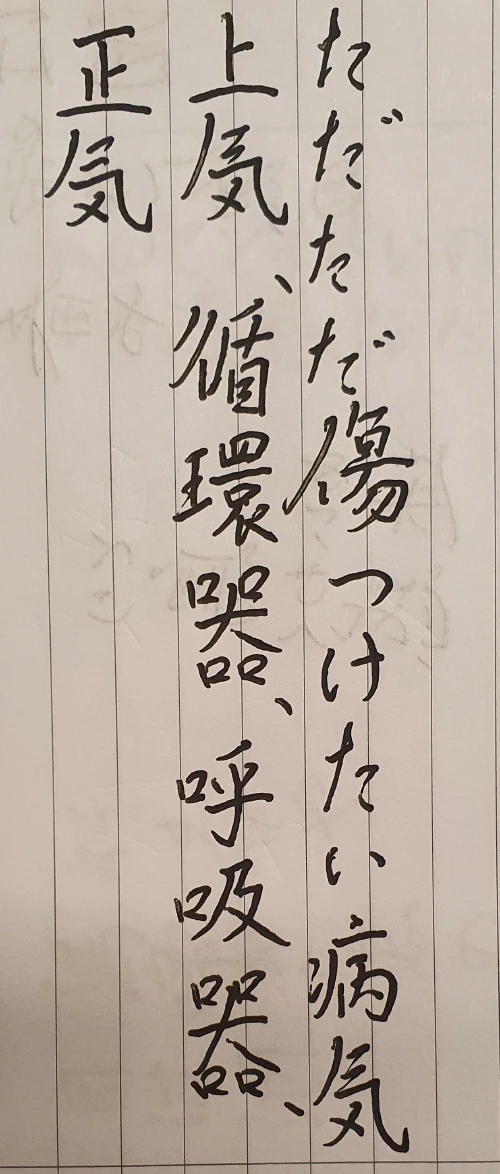 ただただ傷つけたい病気
上気、循環器、呼吸器、
正気